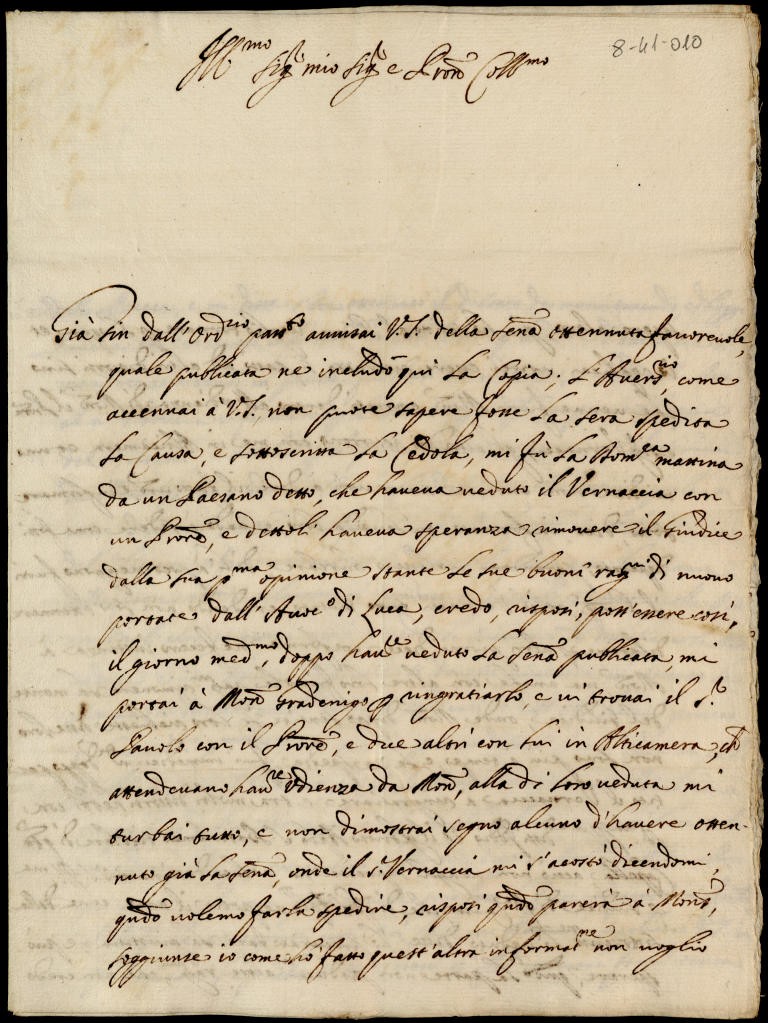 8-41-010
Ill.mo Sig.r mio Sig.r e Pron Coll.mo
Già sin dall'Ord.rio pass.to auuisai V.S. della Senã ottennuta fauoreuole,
quale publicata ne includo qui la Copia; L'Auers.rio come
accennai à V.S. non puote sapere fosse la sera spedita
la Causa, e sottoscritta la Cedola, mi fù la Dom.ca mattina
da un Paesano detto, che haueua ueduto il Vernaccia con
un Prorē, e dettoli haueua speranza rimouere il Giudice
dalla sua p.ma opinione stante le sue buone rag.ni di nuouo
portate dall'Auoc.o di Luca, credo, risposi, poss'essere così,
il giorno med.mo, doppo hau.re ueduto la Senã publicata, mi
portai à Mon.r Gradenigo p ringratiarlo, e ui trouai il S.r
Pauolo con il Prorē, e due altri con lui in Alticamera, ch
attendeuano hau.re Udienza da Mon.r, alla di loro ueduta mi
turbai tutto, e non dimostrai segno alcuno d'hauere otten-
nuto già la Senã, onde il S.r Vernaccia mi s'acostò dicendomi,
qñdo uolemo farla spedire, risposi qñdo parerà à Mons.r,
soggiunse io come hò fatto quest'altra informat.ne non uoglio